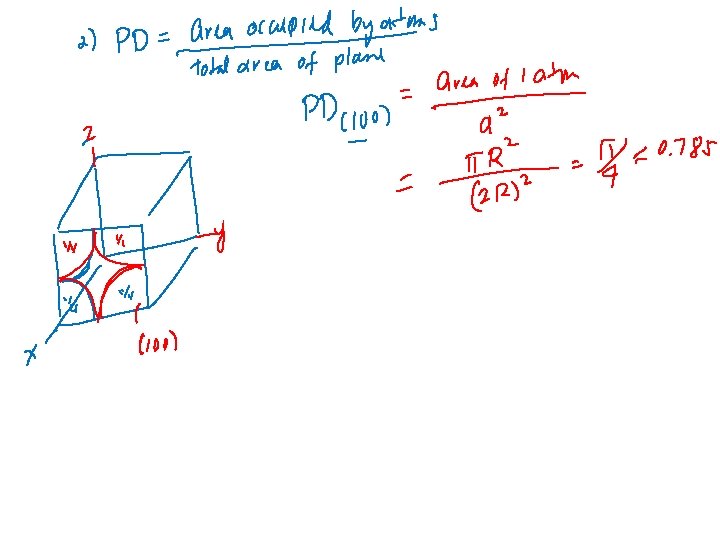 2) PD = Area occupied by atoms
total area of plane
PD(100) = Area of 1 atom
a²
= πR² = π/4 = 0.785
(2R)²
Z
y
1/4
1/4
x
(100)